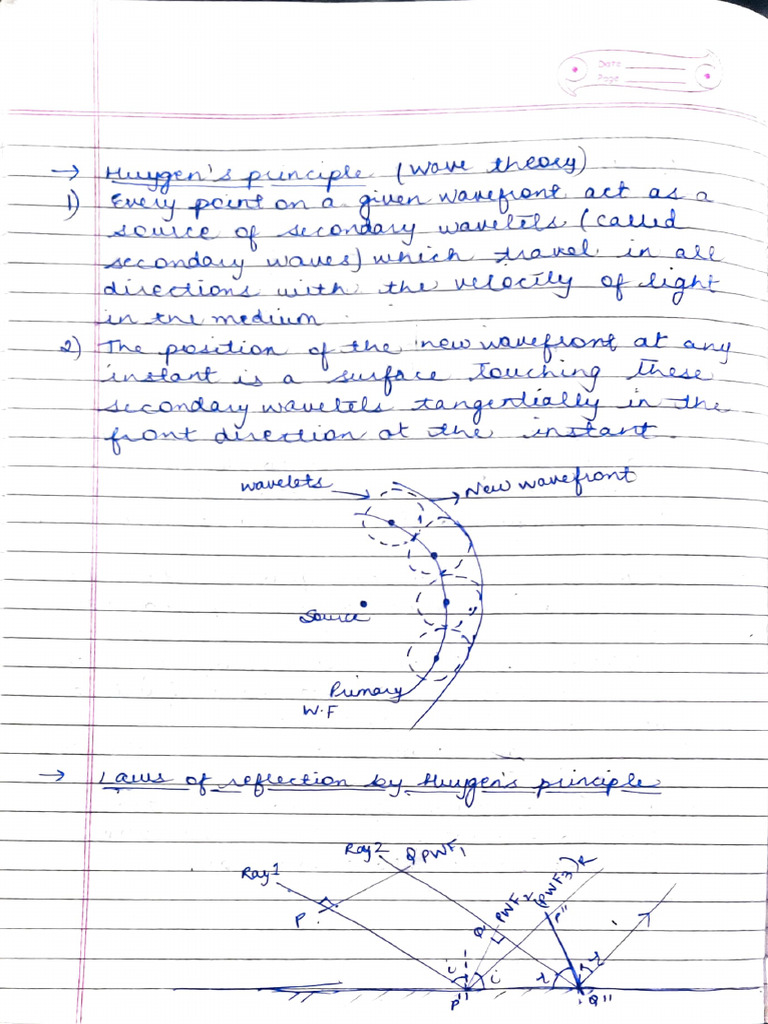 Date
Page
→ Huygen's principle (wave theory)
1) Every point on a given wavefront act as a
source of secondary wavelets (called
secondary waves) which travel in all
directions with the velocity of light
in the medium
2) The position of the new wavefront at any
instant is a surface touching these
secondary wavelets tangentially in the
front direction at the instant.
wavelets → → New wavefront
Source
Primary
W.F
→ Laws of reflection by Huygen's principle
Ray 2 Q PWF1
Ray 1
P
Q PWF2 (PWF3) R
P''
i i r
P'' Q''